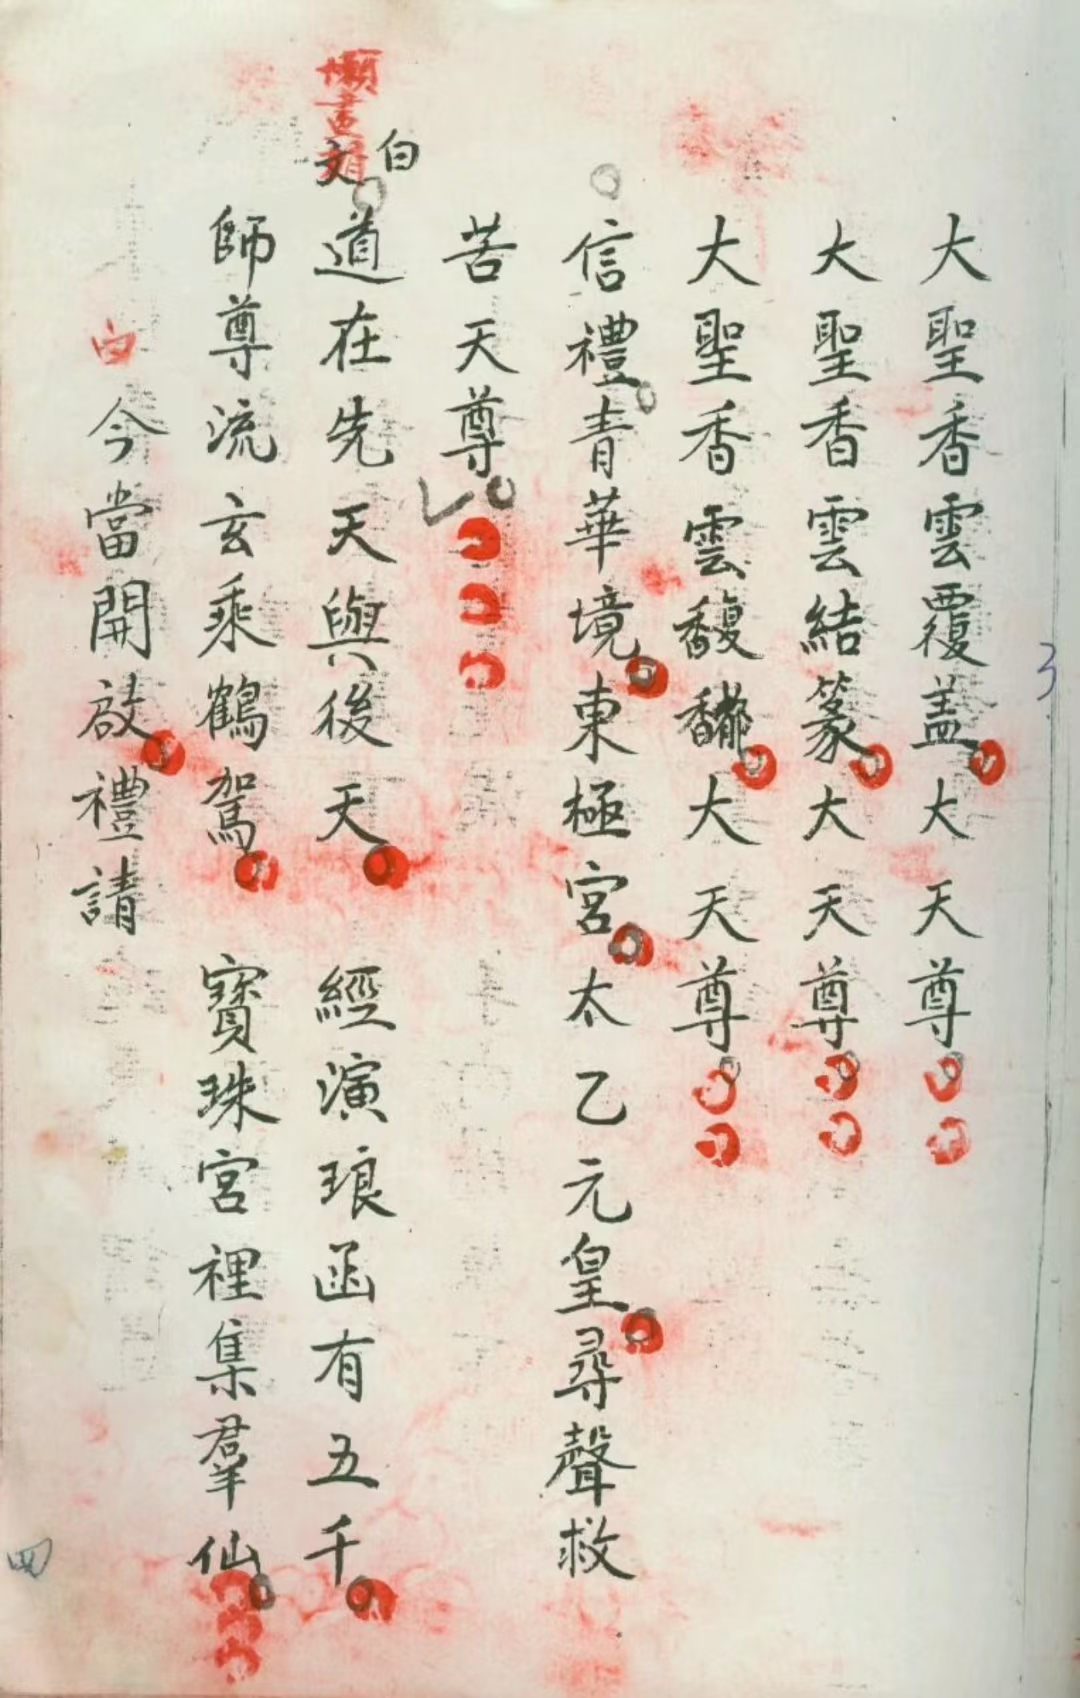 大聖香雲覆盖大天尊
大聖香雲結篆大天尊
大聖香雲馥馪大天尊
信禮青華境東極宮太乙元皇尋聲救
苦天尊
白文
道在先天與後天 經演琅函有五千
師尊流玄乘鶴駕 寶珠宮裡集羣仙
白
今當開啟禮請
四
3